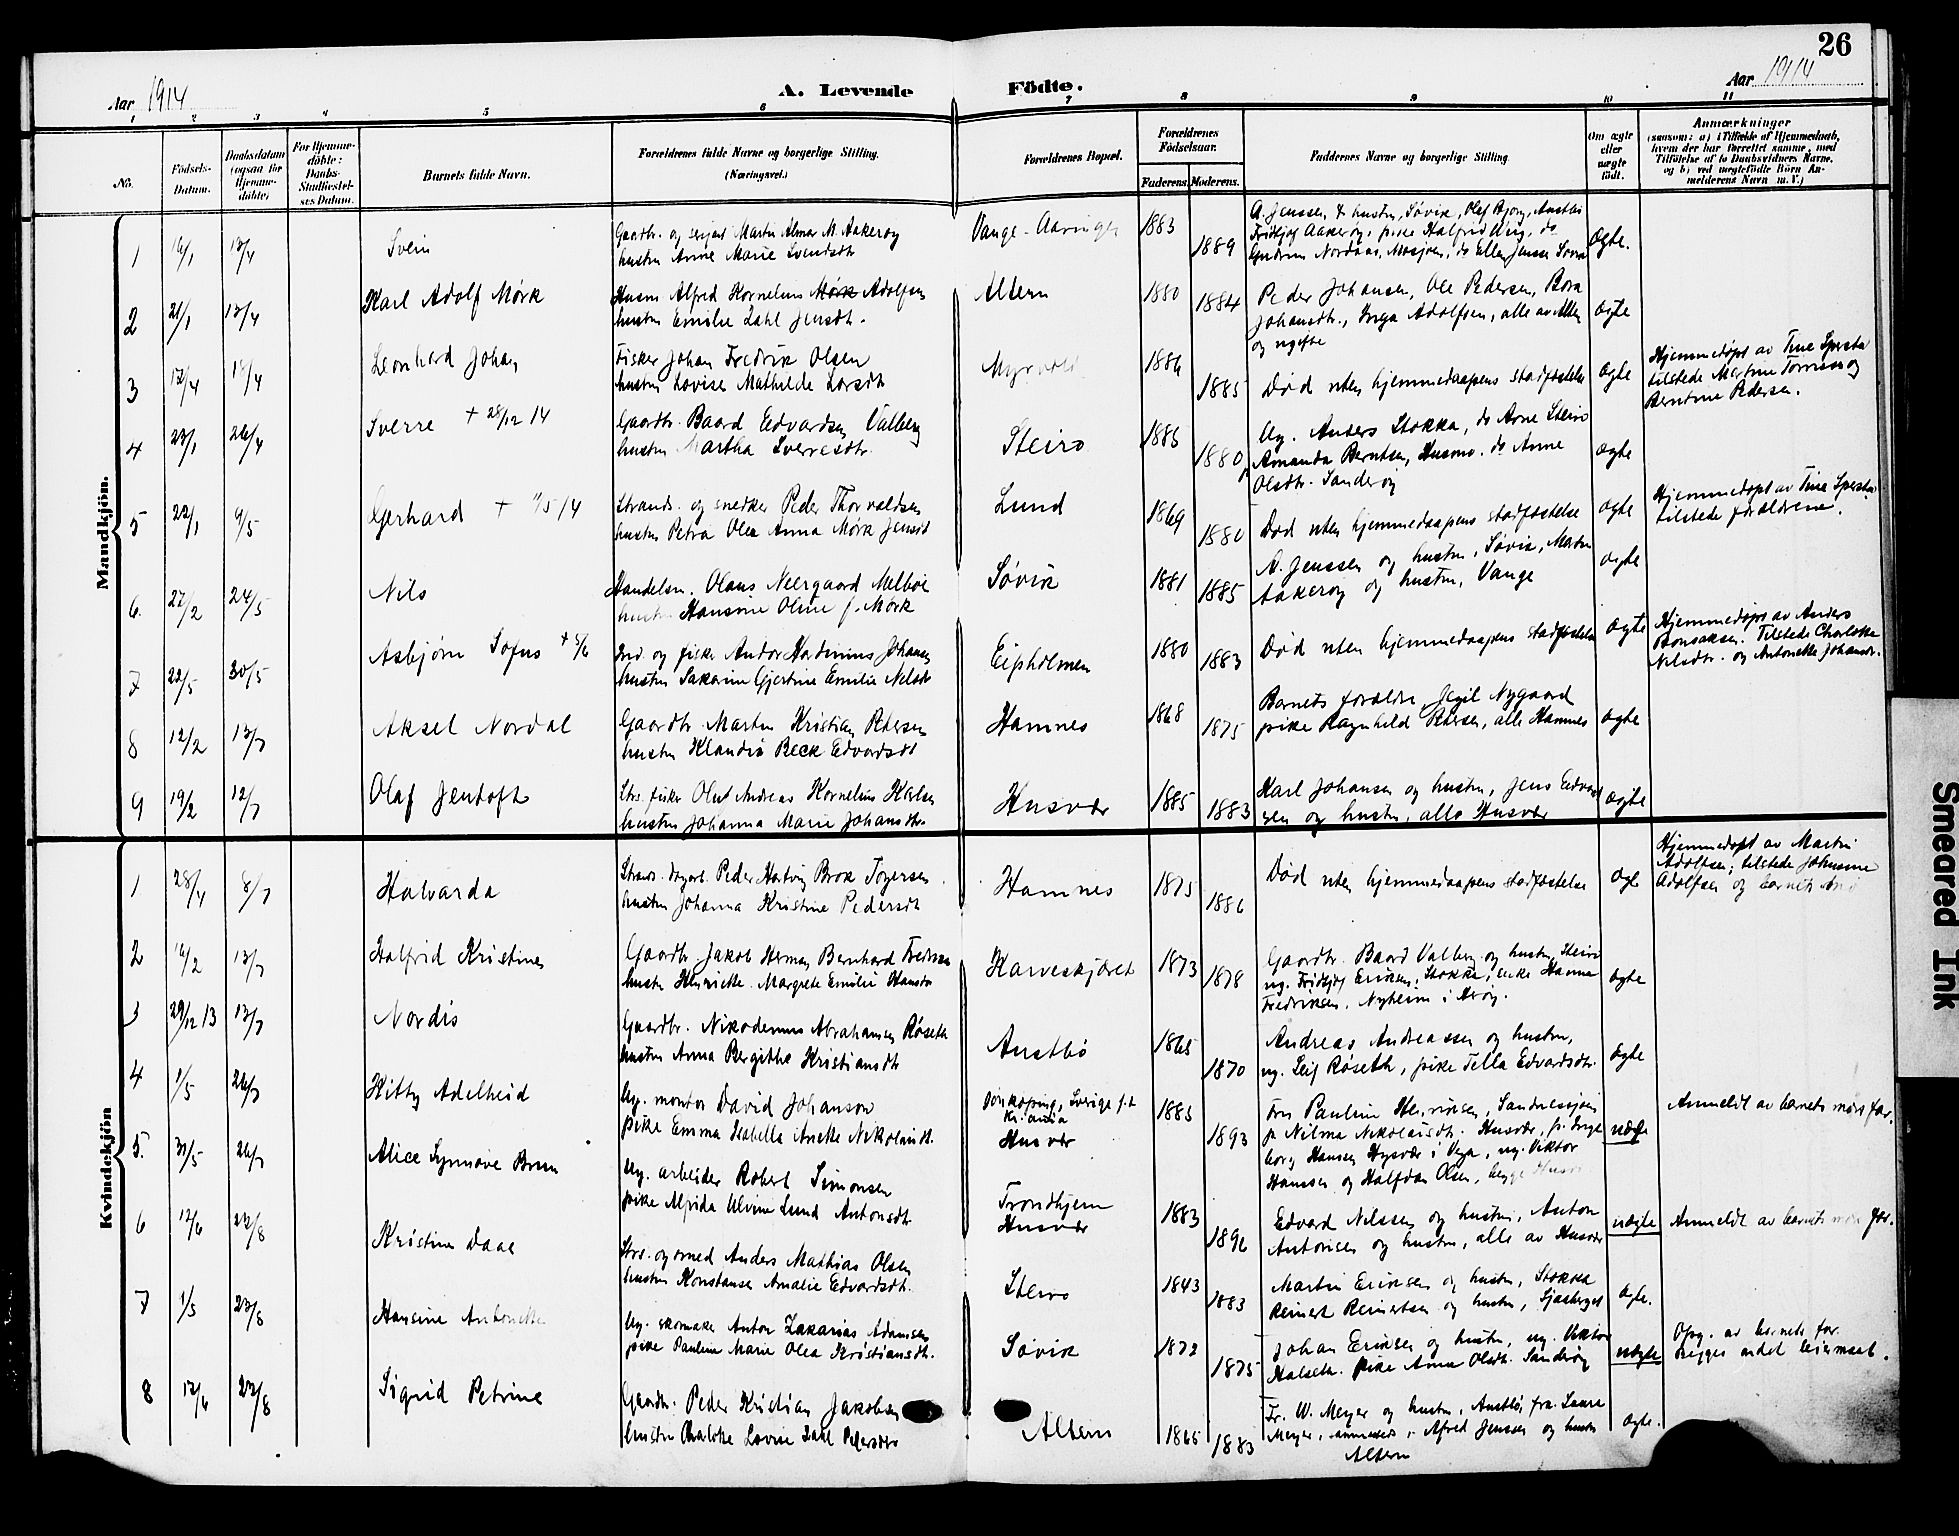 26
Aar 1914
A. Levende Födte.
Aar 1914
1 2 3 4 5 6 7 8 9 10 11
No.
Födsels-
Datum.
Daabsdatum
(ogsaa for
Hjemme-
döbte)
For Hjemme-
döbte:
Daabs-
Stadfæstel-
ses Datum.
Barnets fulde Navn.
Forældrenes fulde Navne og borgerlige Stilling.
(Næringsvei.)
Forældrenes Bopæl.
Forældrenes
Födselsaar.
Faderens. Moderens.
Faddernes Navne og borgerlige Stilling.
Om ægte
eller
uægte
födt.
Anmærkninger
(saasom: a) i Tilfælde af Hjemmedaab,
hvem der har forrettet samme, med
Tilföielse af to Daabsvidners Navne,
og b) ved uægtefödte Börn An-
melderens Navn m. V.)
Mandkjön.
1 13/4 Svein
Gaardbr. og serjent Martin Almar M. Aakerøy
hustru Anne Marie Svendsdtr
Vange
1883 1889
A. Jenssen & hustru, Søvik, Olaf Bjørn, Austbø
Fridtjof Aakerøy, pike Halfrid ds
Gudrun Nordaas, Mosjøen, ds Ellen Jenssen Søvik
Ægte.
2 21/1 13/4 Karl Adolf Mørk
Husm Alfred Kornelius Mørk Adolfsen
hustru Emilie Dahl Jensdtr.
Altern
1880 1884
Peder Johansen, Ole Pedersen, Bora
Johansdtr., Inga Adolfsen, alle av Altern
og ugifte
ægte
3 12/4 14/4 Leonhard Johan
Fisker Johan Fredrik Olsen
hustru Lovise Mathilde Larsdtr
Myrvold
1886 1885
Død uten hjemmedaapens stadfæstelse
ægte
Hjemmedøpt av Tine Sperstad
tilstede Martine Tømmerøy
Berntine Pedersen.
4 23/1 26/4 Sverre + 28/12 14
Gaardbr. Baard Edvardsen Valberg
hustru Martha Sverresdtr.
Steiro
1885 1880
Ug. Anders Stokka, ds Arne Steiro
Amanda Berntsen, Husmo. ds Anne
Olsdtr. Sandøy
ægte
5 22/1 9/5 Gerhard + 11/5 14
Strands. og snedker Peder Thorvaldsen
hustru Petra Olea Anna Mørk Jensdt
Lund
1869 1880
Død uten hjemmedaapens stadfæstelse
ægte
Hjemmedøpt av Tine Sperstad
tilstede forældrene.
6. 27/2 24/5 Nils
Handelsm. Olaus Neergaard Melbøe
hustru Hansine Oline f. Mørk
Søvik
1881 1885
A. Jenssen og hustru, Søvik, Martin
Aakerøy og hustru, Vange
ægte
7 22/5 30/5 Asbjørn Sofus + 5/6
Ind og fisker Andor Hartinius Johansen
hustru Sakarine Gjertine Emilie Nelsdtr
Eipholmen
1880 1883
Død uten hjemmedaapens stadfæstelse
ægte
Hjemmedøpt av Anders
Bonsaksen. Tilstede Charlotte
Nilsdtr. og Antonette Johansdtr.
8 12/2 13/7 Aksel Nordal
Gaardbr. Martin Kristian Petersen
hustru Klaudia Beck Edvardsdt
Hamnes
1868 1875
Barnets forældre, Jegil Nygaard
pike Ragnhild Petersen, alle Hamnes
ægte
9 19/2 12/7 Olaf Jentoft
Strs. fisker Olut Andreas Kornelius Karlsen
hustru Johanna Marie Johansdtr.
Husvær
1885 1883
Karl Johansen og hustru, Jens Edvard
sen og hustru, alle Husvær
ægte
Kvindekjön
1 28/4 8/7 Halvarda
Strands. dagarb. Peder Hartvig Brok Torgersen.
hustru Johanna Kristine Pedersdt
Hamnes
1875 1886
Død uten hjemmedaapens stadfæstelse
ægte
Hjemmedøpt av Martin
Adolfsen; tilstede Johanne
Adolfsen og barnets
2 16/2 13/7 Halfrid Kristine
Gaardbr. Jakob Herman Bernhard Fredriksen
hustru Henriette Margrete Emilie Hansdtr
Karveskjæret
1873 1878
Gaardbr. Baard Valberg og hustru, Steiro
ug. Fridtjof Eriksen, Stokka, enke Hanna
Fredriksen, Nyheim i Herøy.
ægte
3 29/12 13 13/7 Nordis
Gaardbr. Nikodemus Abrahamsen Røseth
hustru Anna Bergithe Kristiansdt
Austbø
1865 1870
Andreas Andreassen og hustru,
ug. Leif Røseth, pike Tella Edvardsdtr.
Ægte
4 1/5 26/7 Kitty Adelheid
Ug. montør David Johanson
pike Emma Isabella Anette Nikolaisdt.
Jönköping, Sverige f.t
Kr.ania
Husvær
1885 1893
Fru Pauline Henriksen, Sandnessjøen
p. Nilma Nikolaisdtr. Husvær, p. Inge
borg Hansen Hysvær i Vega, ug. Viktor
Hanssen og Halfdan Olsen, begge Husvær
uægte
Anmeldt av barnets mors far.
5. 31/5 26/7 Alice Synnøve Brun
Ug. arbeider Robert Simonsen
pike Alfrida Ulvine Lund Antonsdt
Trondhjem
Husvær
1883 1896
Edvard Nilssen og hustru, Anton
Antonsen og hustru, alle av Husvær
uægte
Anmeldt av barnets mors far.
6 12/6 23/8 Kristine Daae
Strs. og smed Anders Mathias Olsen
hustru Konstanse Amalie Edvardsdt.
Steiro
1843 1883
Martin Eriksen og hustru, Stokka
Reinert Reinertsen og hustru, Sjaaberget
Ægte.
7 1/5 23/8 Hansine Antonette
Ug. skomaker Anton Zakarias Adamsen
pike Pauline Marie Olea Kristiansdt.
Søvik
1872 1875
Johan Eriksen og hustru, ug. Viktor
Halseth. pike Anna Olsdt. Sandøy
uægte
Opg. av barnets far.
begges andet leiermaal.
8 12/6 23/8 Sigrid Petrine
Gaardbr. Peder Kristian Jakobsen
hustru Charlotte Lovise Dahl Pedersdtr
Altern
1865 1883
Fr. W. Meyer og hustru, Austbø, frk. Laura
Meyer, Alfred Jenssen og hustru
Altern
ægte.
Smeared Ink